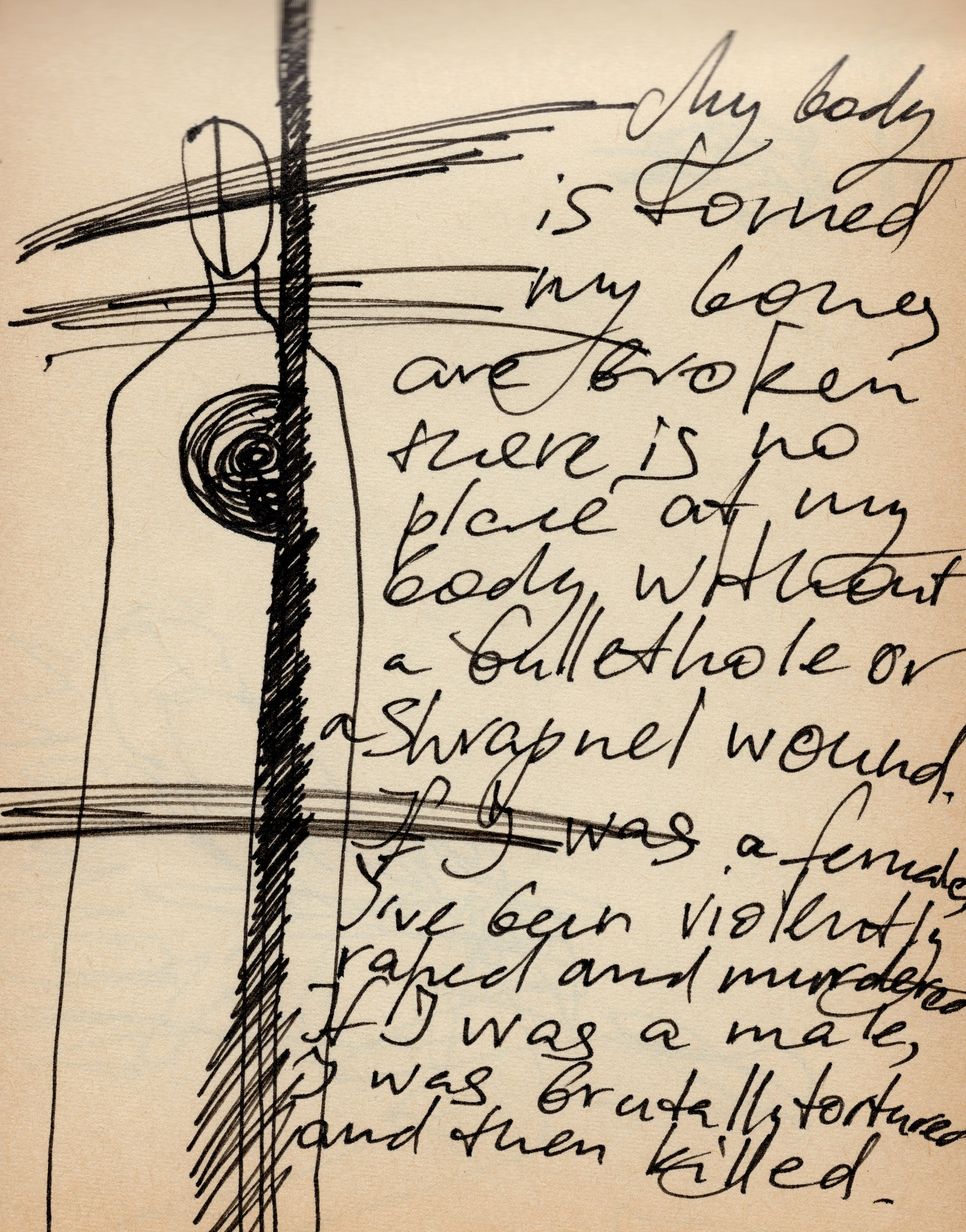 My body
is torned
my bones
are broken
there is no
place at my
body without
a bullethole or
a shrapnel wound.
If I was a female,
I've been violently
raped and murdered
If I was a male,
I was brutally tortured
and then killed.